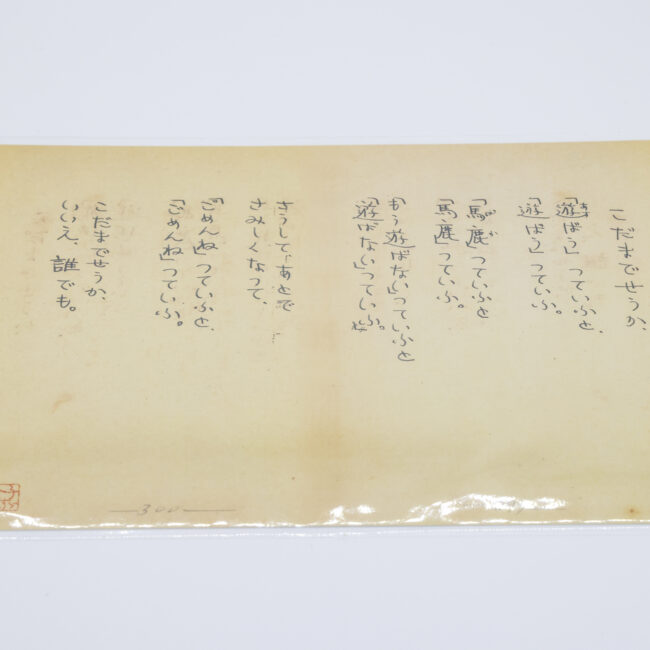 こだまでせうか、
「遊ばう」つていふと、
「遊ばう」つていふ。
「馬鹿」つていふと
「馬鹿」つていふ。
もう遊ばない」つていふと
「遊ばない」つていふ。
さうして、あとで
さみしくなつて、
「ごめんね」つていふと、
「ごめんね」つていふ。
こだまでせうか、
いいえ、誰でも。
300